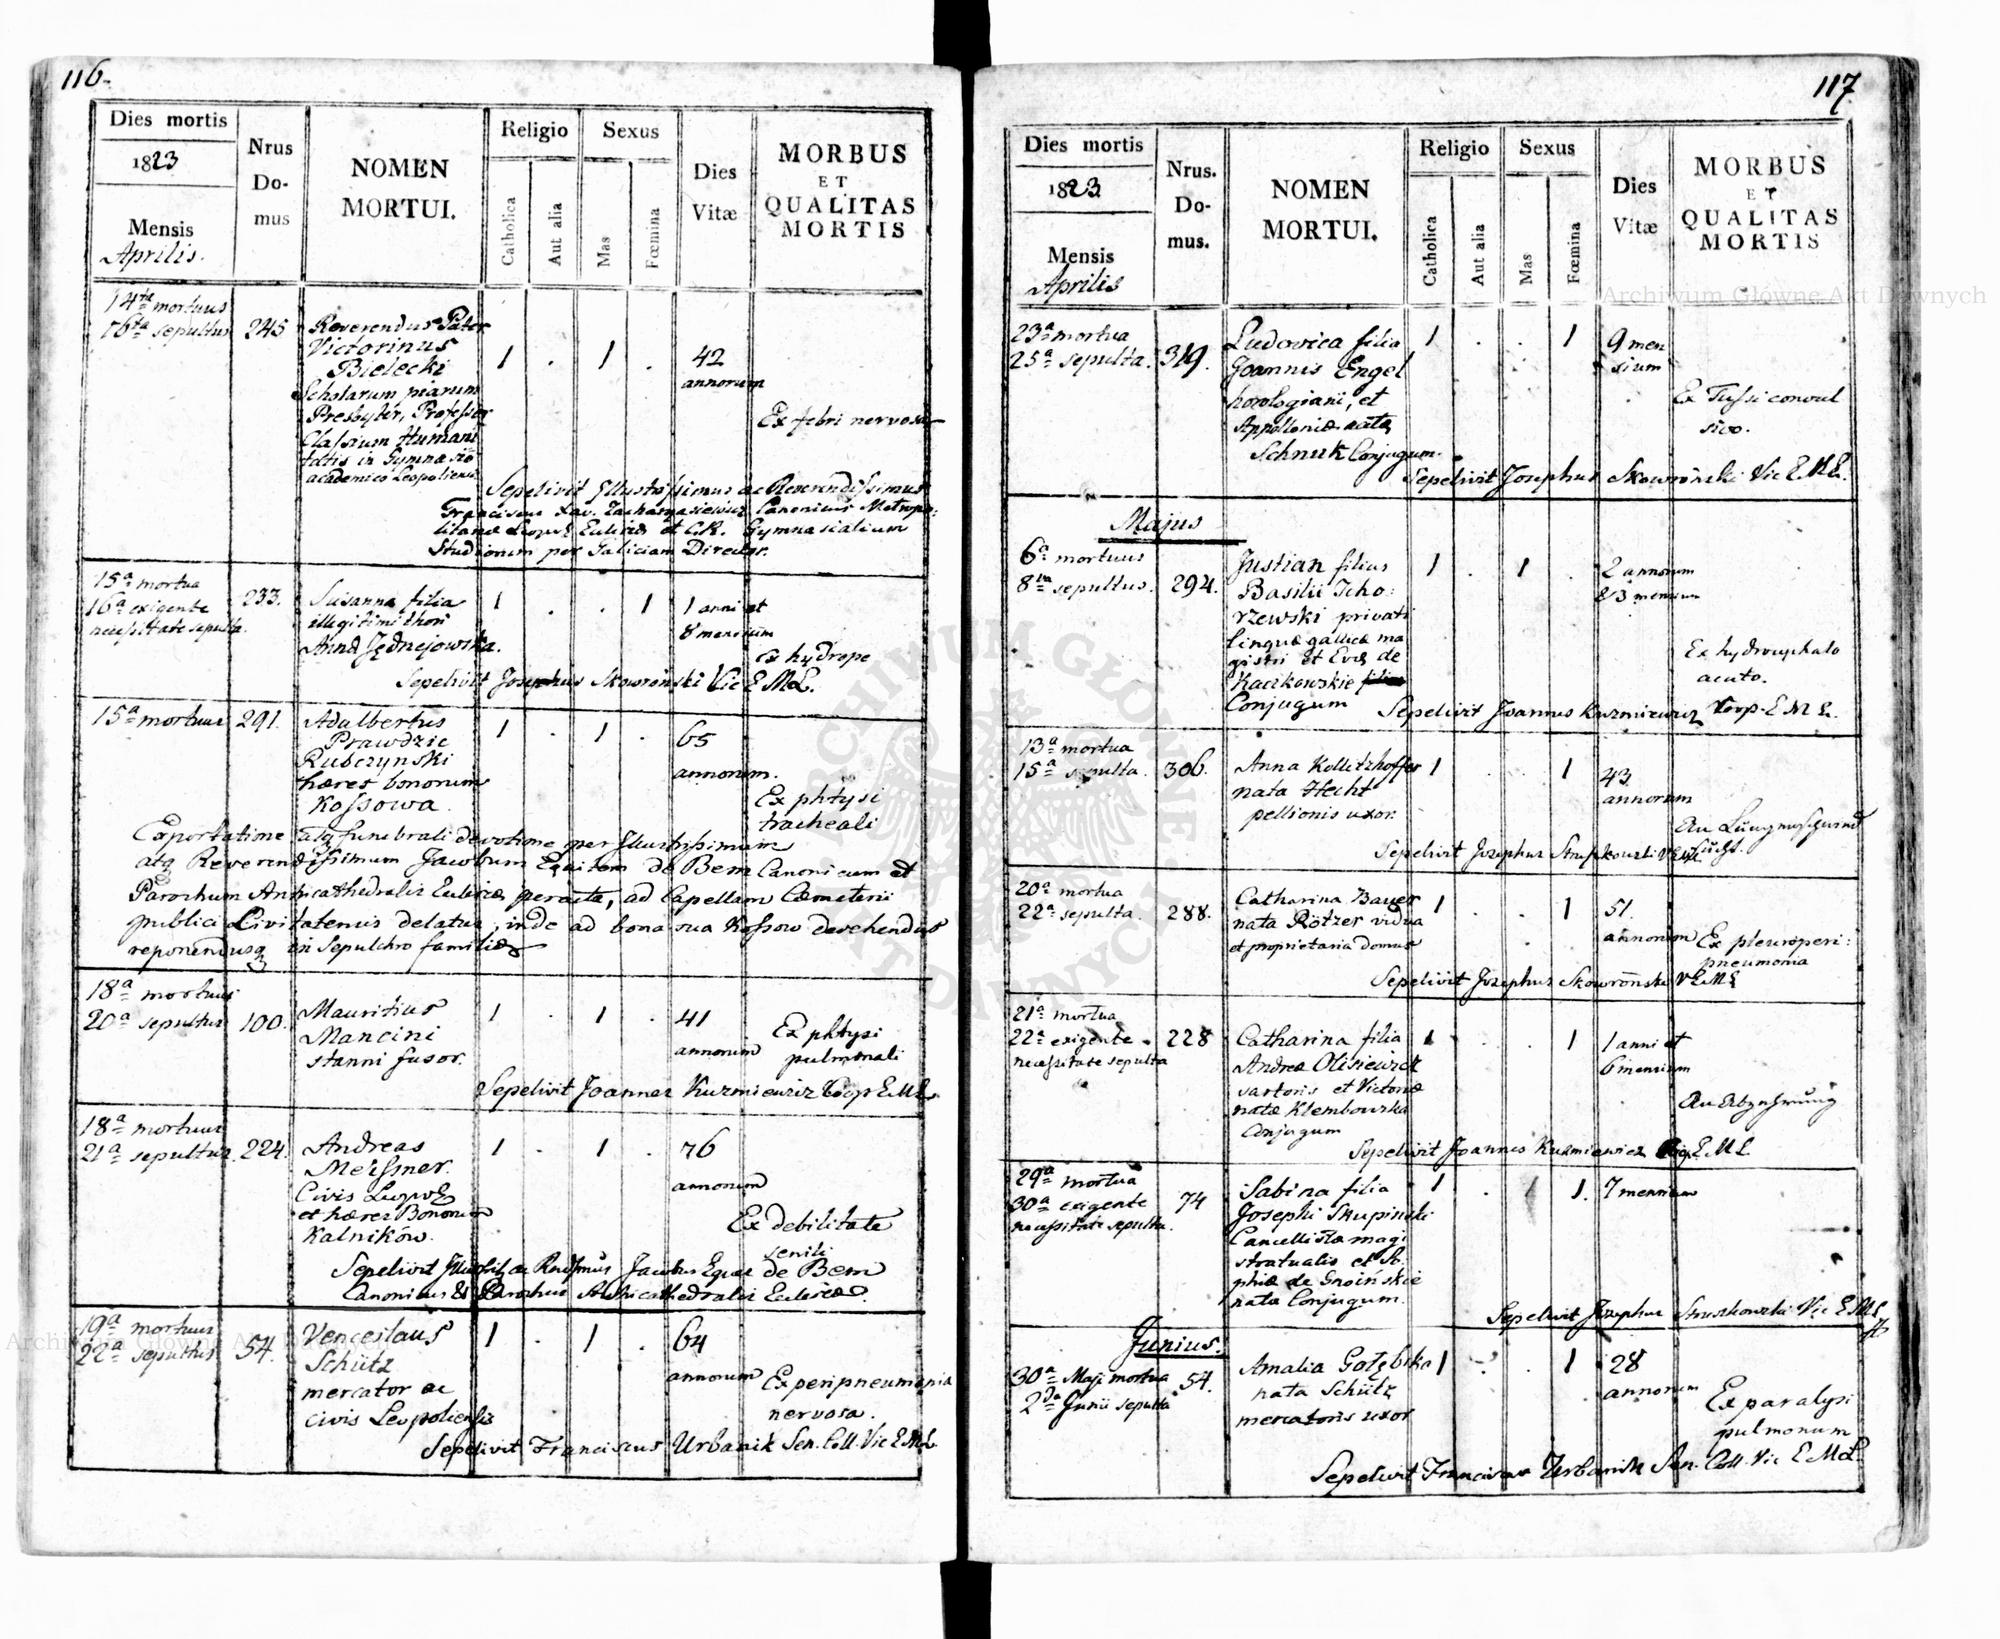 116.
Dies mortis
1823
Mensis
Aprilis.
Nrus
Do-
mus
NOMEN
MORTUI.
Religio
Catholica
Aut alia
Sexus
Mas
Fœmina
Dies
Vitæ
MORBUS
ET
QUALITAS
MORTIS
14ta mortuus
16ta sepultus 245 Reverendus Pater
Victorinus
Bielecki 1 . 1 . 42
Scholarum piarum annorum
Presbyter, Professor
Classium Humani Ex febri nervosa
tatis in Gymnasio
academico Leopoliensi
Sepelivit Illustrissimus ac Reverendissimus
Franciscus Xav. Zachariasiewicz Canonicus Metropo:
litanæ Leopol Ecclesiæ et C.R. Gymnasialium
Studiorum per Galiciam Director.
15a mortua
16a exigente 233. Susanna filia 1 . . 1 1 anni et
necessitate sepulta. illegitimi thori 8 mensium
Anna Jędrzejowska.
ex hydrope
Sepelivit Josephus Skowroński Vic E ML.
15a mortuus 291. Adalbertus 1 . 1 . 65
Prawdzic
Rubczynski annorum.
hæres bonorum
Kossowa. Ex phtysi
tracheali
Exportatione atq funebrali devotione per Illustrissimum
atq Reverendissimum Jacobum Equitem de Bem Canonicum et
Parochum Archicathedralis Ecclesiæ peracta, ad Capellam Cæmeterii
publici Civitatensis delatus, inde ad bona sua Kossow devehendus
reponendusq in Sepulchro familiæ
18a mortuus
20a sepultus 100. Mauritius 1 . 1 . 41
Mancini annorum Ex phtysi
stanni fusor. pulmonali
Sepelivit Joannes Kuzmiewicz Coop E ML.
18a mortuus
21a sepultus. 224. Andreas 1 . 1 . 76
Meissner. annorum
Civis Leopol
et hæres Bonorum Ex debilitate
Kalników. senili
Sepelivit ac Jacobus Eques de Bem
Canonicus et Parochus Archicathedralis Ecclesiæ.
19a mortuus
22a sepultus 54. Venceslaus 1 . 1 . 64
Schütz annorum Ex peripneumonia
mercator ac nervosa.
civis Leopoliensis
Sepelivit Franciscus Urbanik Sen. Coll. Vic E ML.
117
Dies mortis
1823
Mensis
Aprilis
Nrus.
Do-
mus.
NOMEN
MORTUI.
Religio
Catholica
Aut alia
Sexus
Mas
Fœmina
Dies
Vitæ
MORBUS
ET
QUALITAS
MORTIS
23a mortua
25a sepulta. 319. Ludovica filia 1 . . 1 9 men
Joannis Engel sium
horologiani, et Ex Tussi convul
Appolloniæ natæ sivo.
Schnuk Conjugum.
Sepelivit Josephus Skowroński Vic E ML.
Majus
6a mortuus
8va sepultus. 294. Justian filius 1 . 1 . 2 annorum
Basilii Tcho: & 3 mensium
rzewski privati
linguæ gallicæ ma
gistri et Evæ de Ex hydrocephalo
Kaczkowskie acuto.
Conjugum Sepelivit Joannes Kuzmiewicz Coop. E ML.
13a mortua
15a sepulta. 306. Anna Kolletzhoffer 1 . . 1 43
nata Hecht annorum
pellionis uxor. An Lungenschwind
sucht.
Sepelivit Josephus
20a mortua
22a sepulta. 288. Catharina Bauer 1 . . 1 51.
nata Rötzer vidua annorum Ex pleuroperi:
et proprietaria domus pneumonia
Sepelivit Josephus Skowroński V E ML
21a mortua
22a exigente 228 Catharina filia 1 . . 1 1 anni et
necessitate sepulta Andreæ Olisiewicz 6 mensium
sartoris et Victoriæ
natæ Klembowska An Abzehrung
Conjugum
Sepelivit Joannes Kuzmiewicz E ML.
29a mortua
30a exigente 74 Sabina filia 1 . 1 7 mensium
necessitate sepulta. Josephi Skupinski
Cancellistæ magi
stratualis et So
phiæ de Gnoińskie
nata Conjugum.
Sepelivit Josephus Vic E ML
Junius.
30a Maji mortua 54. Amalia Gołębska 1 . . 1 28
2da Junii sepulta nata Schütz annorum
mercatoris uxor Ex paralysi
pulmonum
Sepelivit Franciscus Urbanik Sen. Coll. Vic E ML.
Archiwum Główne Akt Dawnych
Archiwum Główne Akt Dawnych
ARCHIWUM GŁÓWNE AKT DAWNYCH